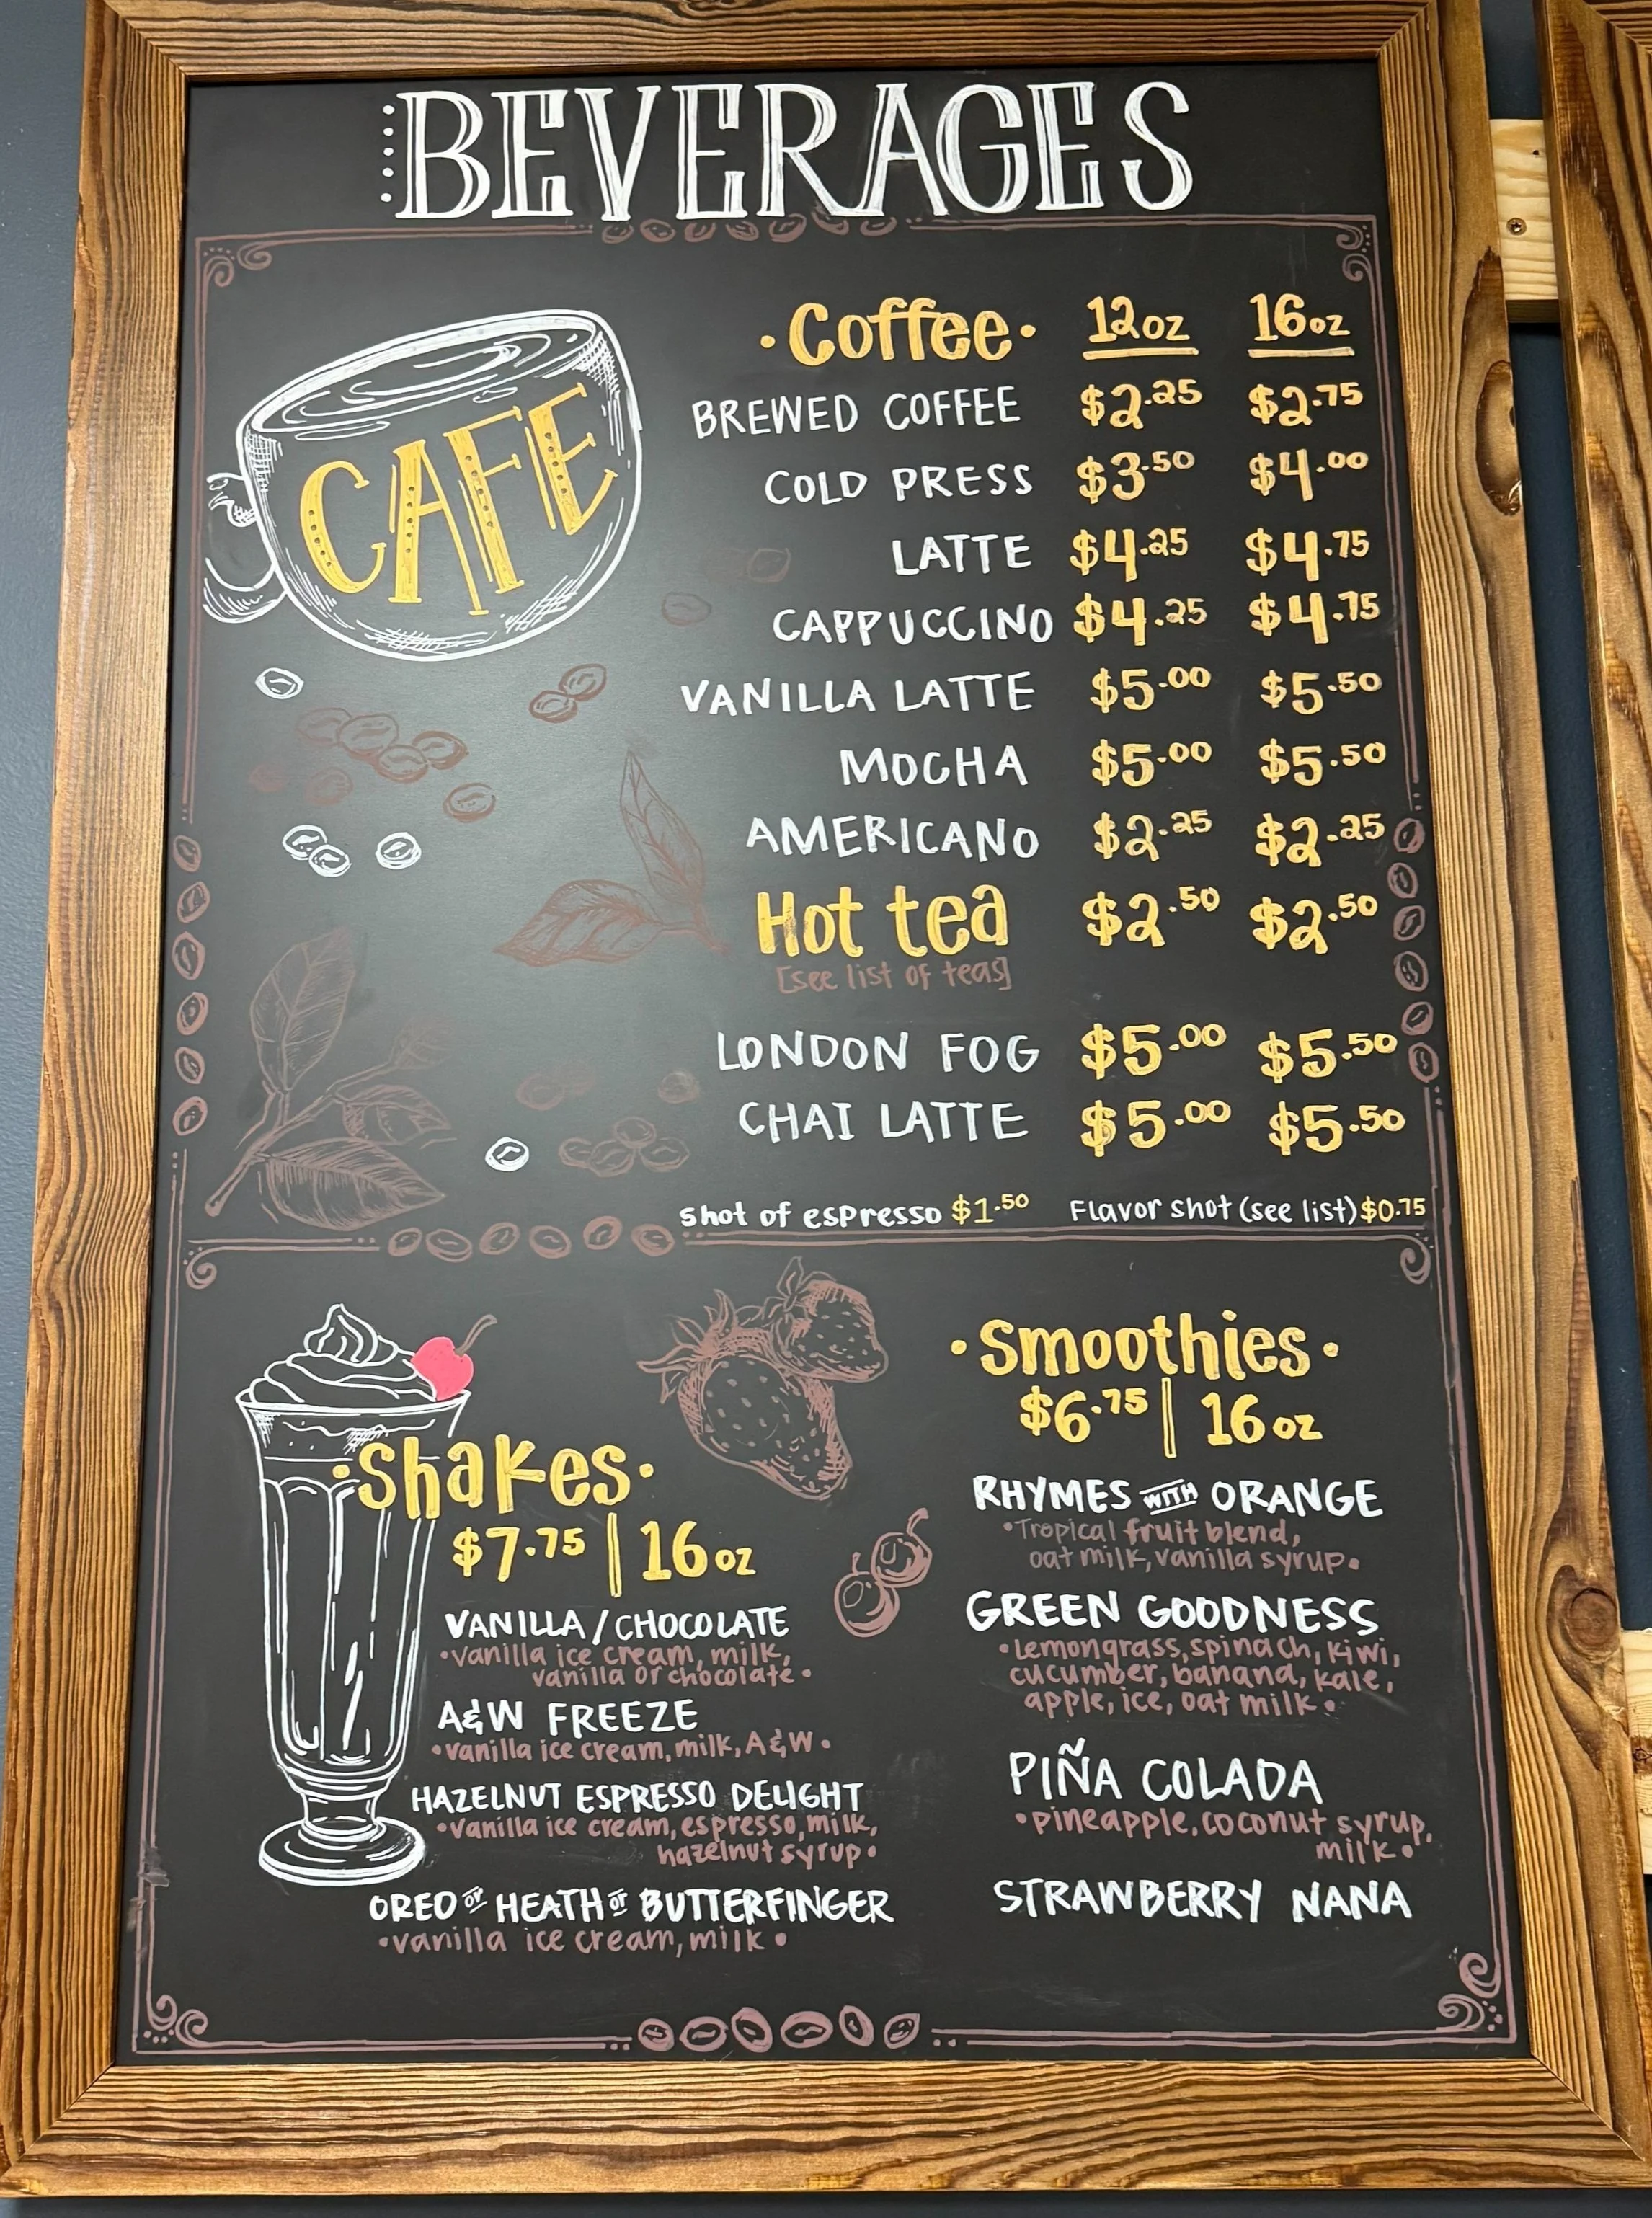 BEVERAGES
CAFE
·Coffee· 12oz 16oz
BREWED COFFEE $2.25 $2.75
COLD PRESS $3.50 $4.00
LATTE $4.25 $4.75
CAPPUCCINO $4.25 $4.75
VANILLA LATTE $5.00 $5.50
MOCHA $5.00 $5.50
AMERICANO $2.25 $2.25
Hot tea $2.50 $2.50
[see list of teas]
LONDON FOG $5.00 $5.50
CHAI LATTE $5.00 $5.50
shot of espresso $1.50 Flavor shot (see list) $0.75
·Shakes·
$7.75 | 16oz
VANILLA / CHOCOLATE
•vanilla ice cream, milk,
vanilla or chocolate•
A&W FREEZE
•vanilla ice cream, milk, A&W•
HAZELNUT ESPRESSO DELIGHT
•vanilla ice cream, espresso, milk,
hazelnut syrup•
OREO or HEATH or BUTTERFINGER
•vanilla ice cream, milk•
·Smoothies·
$6.75 | 16oz
RHYMES WITH ORANGE
•Tropical fruit blend,
oat milk, vanilla syrup•
GREEN GOODNESS
•Lemongrass, spinach, kiwi,
cucumber, banana, kale,
apple, ice, oat milk•
PIÑA COLADA
•pineapple, coconut syrup,
milk•
STRAWBERRY NANA